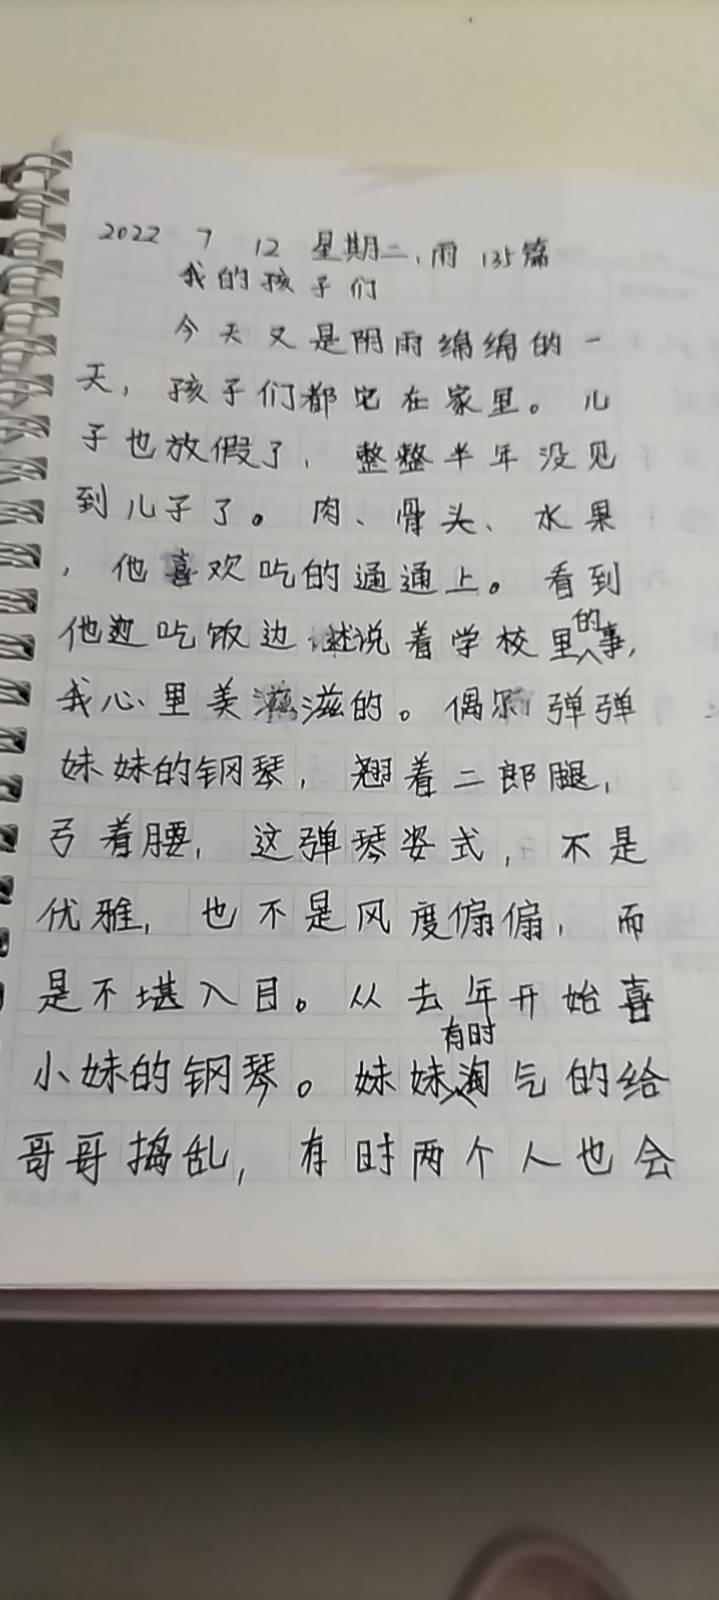 2022 7 12 星期二,雨 135篇
我的孩子们
今天又是阴雨绵绵的一
天,孩子们都宅在家里。儿
子也放假了,整整半年没见
到儿子了。肉、骨头、水果
,他喜欢吃的通通上。看到
他边吃饭边述说着学校里的事,
我心里美滋滋的。偶尔弹弹
妹妹的钢琴,翘着二郎腿,
弓着腰,这弹琴姿式,不是
优雅,也不是风度偏偏,而
是不堪入目。从去年开始喜
小妹的钢琴。妹妹有时淘气的给
哥哥捣乱,有时两个人也会